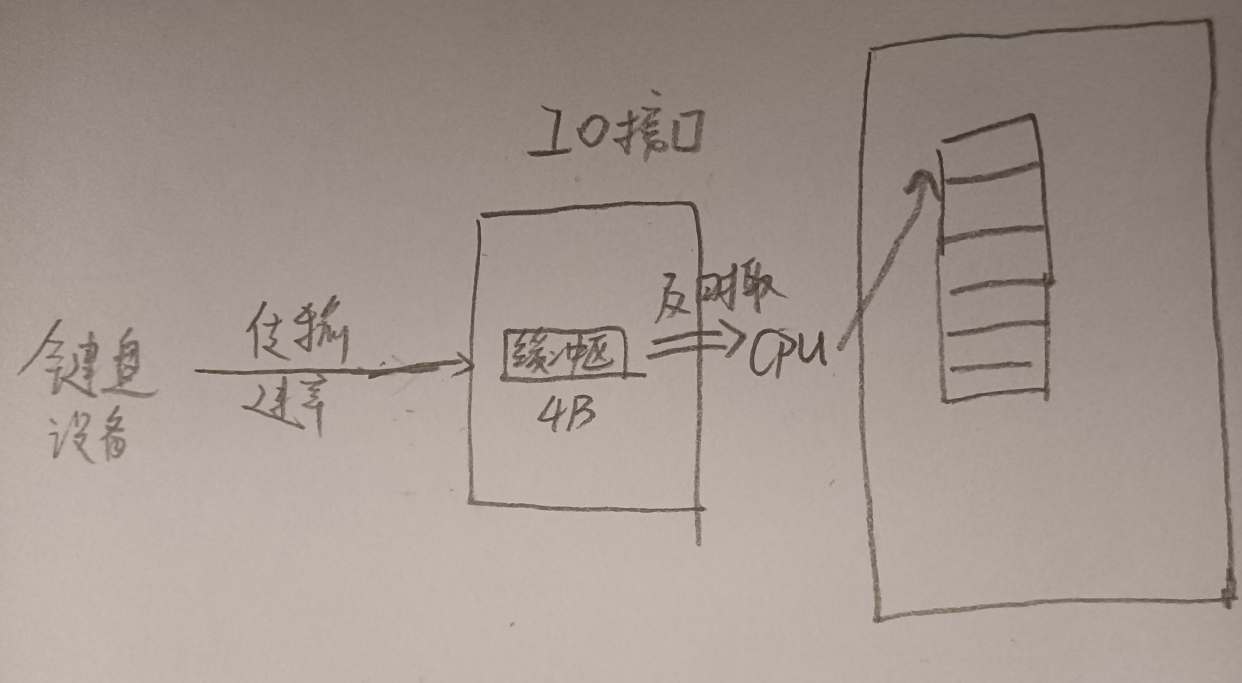 IO接口
键盘
设备
传输
速率
缓冲区
4B
及时取
CPU